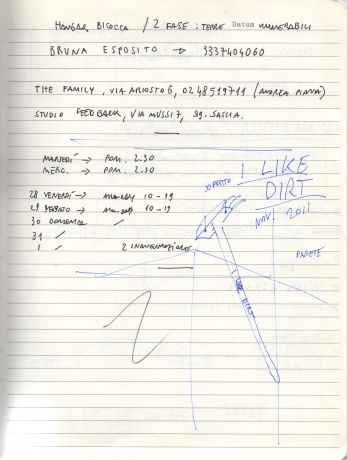 HANGAR BICOCCA / 2 FASE: TERRE Datum VULNERABILI
BRUNA ESPOSITO → 3337404060
THE FAMILY, VIA ARIOSTO 6, 0248519711 (ANDREA
STUDIO FEEDBACK, VIA MUSSI 7, SG. SASCIA.
MARTEDÌ → POM. 2.30
MERC. → POM. 2.30
28 VENERDÌ → 10-19
29 SABATO → 10-19
30 DOMENICA "
31 "
1 " 2 INAUGURAZIONE
SOFFITTO
I LIKE
DIRT
NOV. 2011
PARETE
I LIKE DIRT